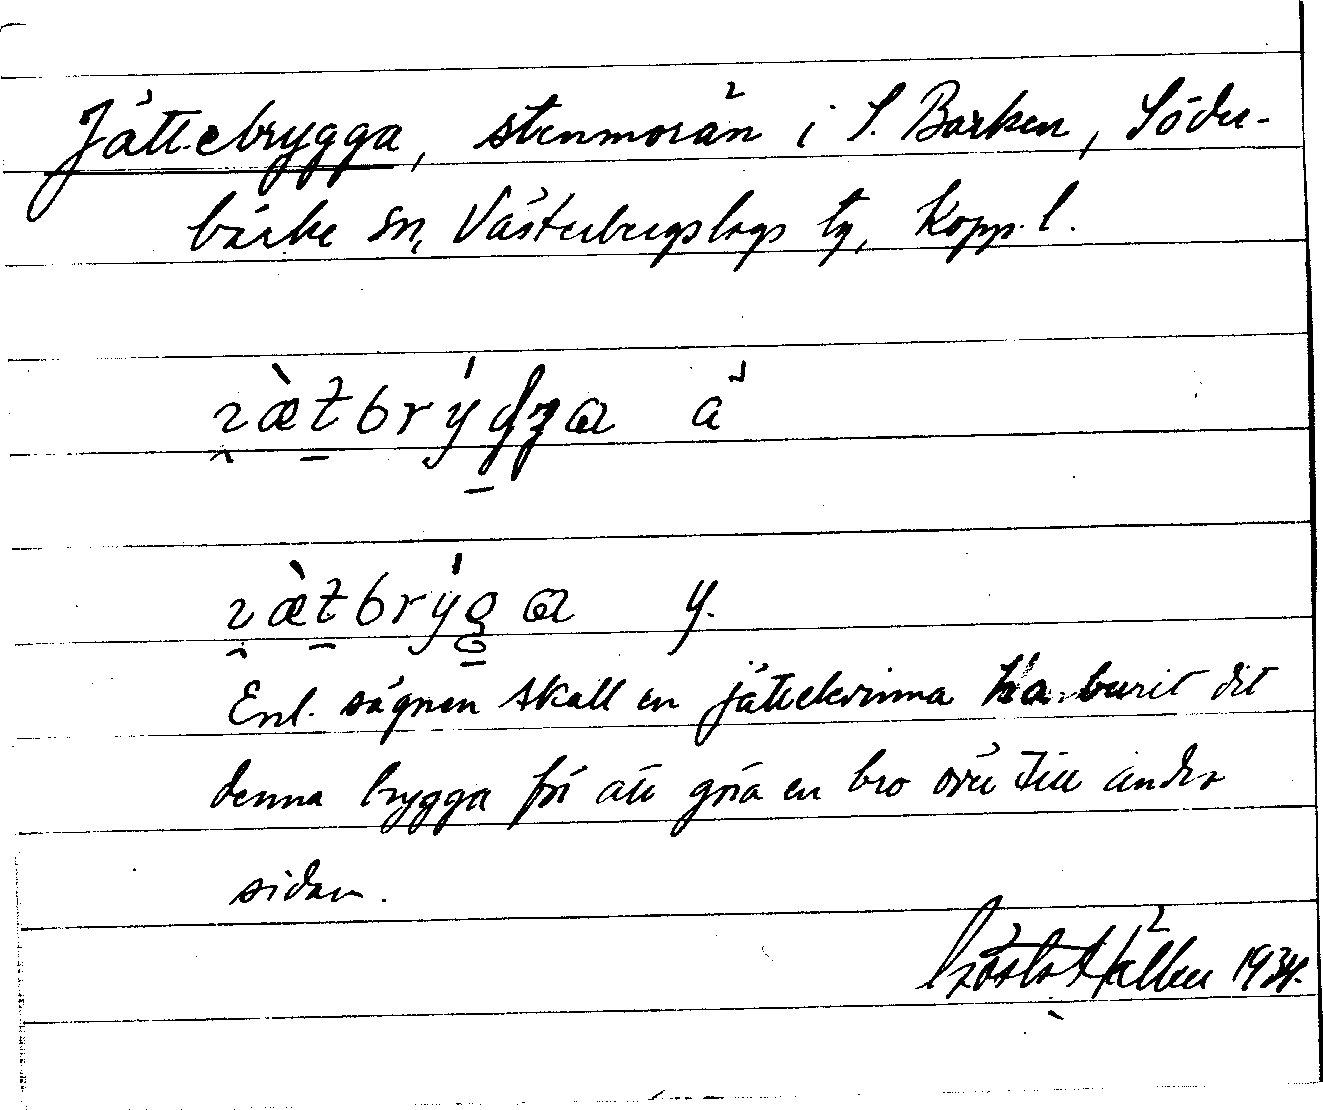 Jättebrygga, stenmorän i S. Barken, Söder-
bärke sn, Västerbergslags tg, Kopp. l.
ɿæ̀t̠brýɠʒa ä
ɿæ̀t̠brýga y.
Enl. sägnen skall en jättekvinna ha burit dit
denna brygga för att göra en bro över till andra
sidan.
Gösta Hällen 1934.